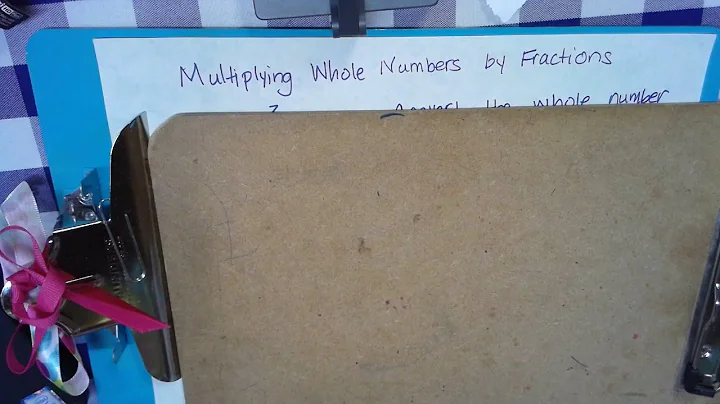 Multiplying Whole Numbers by Fractions
the whole number